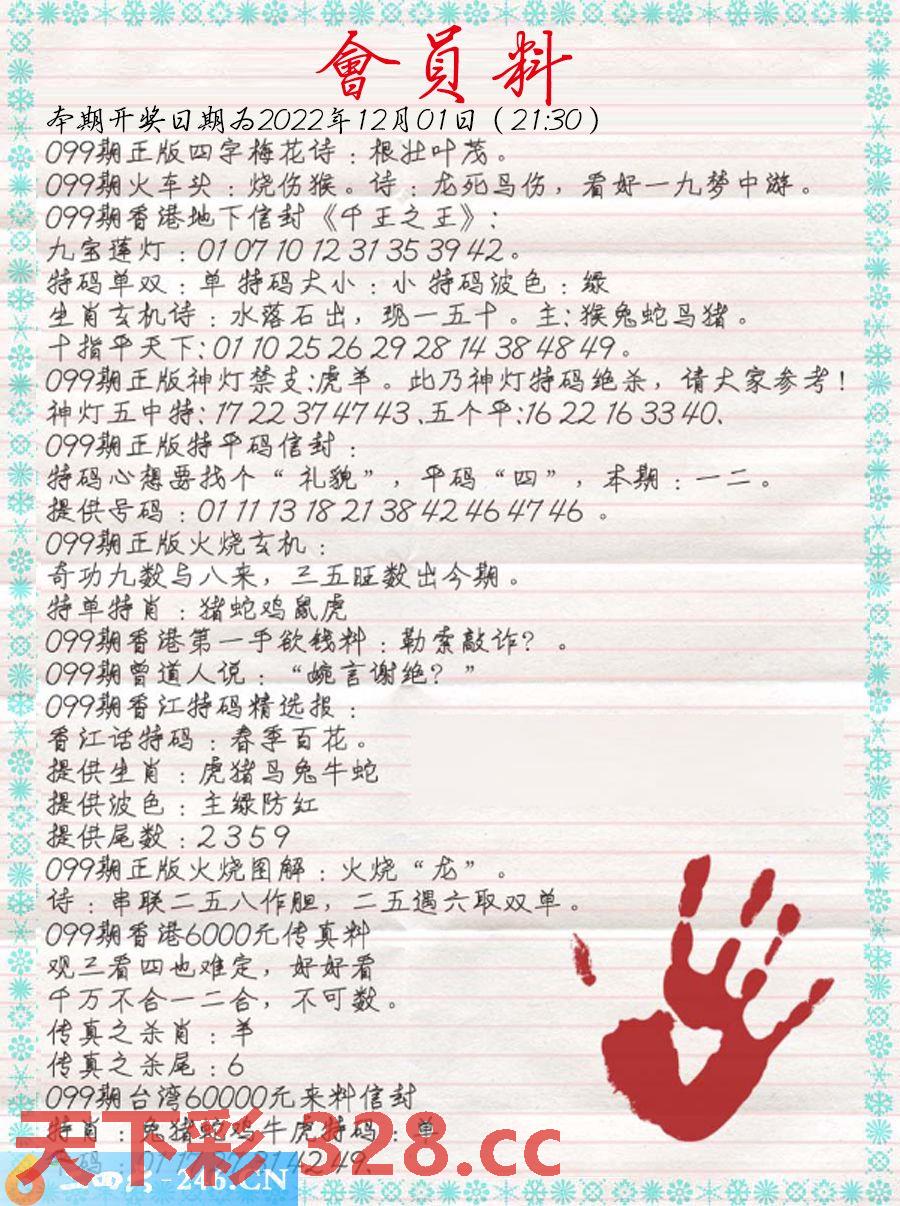 會員料
本期开奖日期为2022年12月01日（21:30）
099期正版四字梅花诗：根壮叶茂。
099期火车头：烧伤猴。诗：龙死鸟伤，看好一九梦中游。
099期香港地下信封《千王之王》：
九宝莲灯：01 07 10 12 31 35 39 42。
特码单双：单 特码大小：小 特码波色：绿
生肖玄机诗：水落石出，现一五十。主:猴兔蛇马猪。
十指平天下:01 10 25 26 29 28 14 38 48 49。
099期正版神灯禁支:虎羊。此乃神灯特码绝杀，请大家参考！
神灯五中特: 17 22 37 47 43、五个平:16 22 16 33 40、
099期正版特平码信封：
特码心想要找个“礼貌”，平码“四”，本期：一二。
提供号码：01 11 13 18 21 38 42 46 47 46 。
099期正版火烧玄机：
奇功九数与八来，三五旺数出今期。
特单特肖：猪蛇鸡鼠虎
099期香港第一手欲钱料：勒索敲诈？。
099期曾道人说：“婉言谢绝？”
099期香江特码精选报：
香江话特码：春季百花。
提供生肖：虎猪马兔牛蛇
提供波色：主绿防红
提供尾数：2 3 5 9
099期正版火烧图解：火烧“龙”。
诗：串联二五八作胆，二五遇六取双单。
099期香港6000元传真料
观三看四也难定，好好看
千万不合一二合，不可数。
传真之杀肖：羊
传真之杀尾：6
099期台湾60000元来料信封
特肖：兔猪蛇鸡牛虎特码：单
天下彩 328.cc
-246.CN